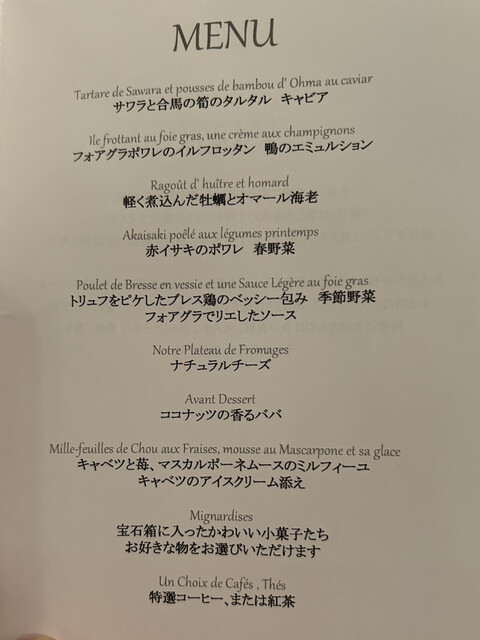 MENU
Tartare de Sawara et pousses de bambou d' Ohma au caviar
サワラと合馬の筍のタルタル　キャビア
Ile frottant au foie gras, une crème aux champignons
フォアグラポワレのイルフロッタン　鴨のエミュルション
Ragoût d' huître et homard
軽く煮込んだ牡蠣とオマール海老
Akaisaki poêlé aux légumes printemps
赤イサキのポワレ　春野菜
Poulet de Bresse en vessie et une Sauce Légère au foie gras
トリュフをピケしたブレス鶏のベッシー包み　季節野菜
フォアグラでリエしたソース
Notre Plateau de Fromages
ナチュラルチーズ
Avant Dessert
ココナッツの香るババ
Mille-feuilles de Chou aux Fraises, mousse au Mascarpone et sa glace
キャベツと苺、マスカルポーネムースのミルフィーユ
キャベツのアイスクリーム添え
Mignardises
宝石箱に入ったかわいい小菓子たち
お好きな物をお選びいただけます
Un Choix de Cafés , Thés
特選コーヒー、または紅茶